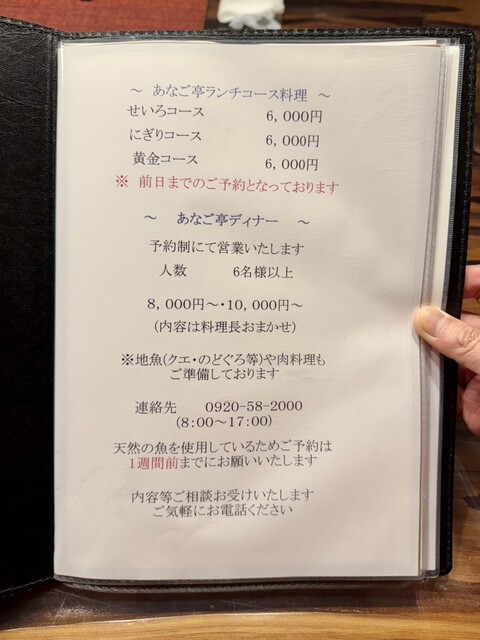 ～ あなご亭ランチコース料理 ～
せいろコース 6,000円
にぎりコース 6,000円
黄金コース 6,000円
※ 前日までのご予約となっております
～ あなご亭ディナー ～
予約制にて営業いたします
人数 6名様以上
8,000円～・10,000円～
(内容は料理長おまかせ)
※地魚(クエ・のどぐろ等)や肉料理も
ご準備しております
連絡先 0920-58-2000
(8:00～17:00)
天然の魚を使用しているためご予約は
1週間前までにお願いいたします
内容等ご相談お受けいたします
ご気軽にお電話ください